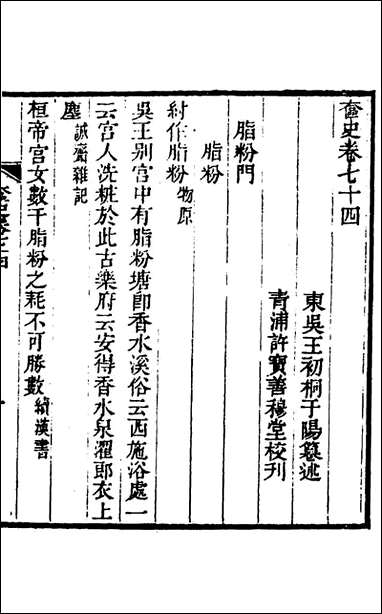 奩史卷七十四
東吳王初桐于陽纂述
青浦許寶善穆堂校刋
脂粉門
脂粉
紂作脂粉物原
吳王别宮中有脂粉塘卽香水溪俗云西施浴處一
云宮人洗粧於此古樂府云安得香水泉濯郎衣上
塵誠齋雜記
桓帝宮女數千脂粉之耗不可勝數續漢書